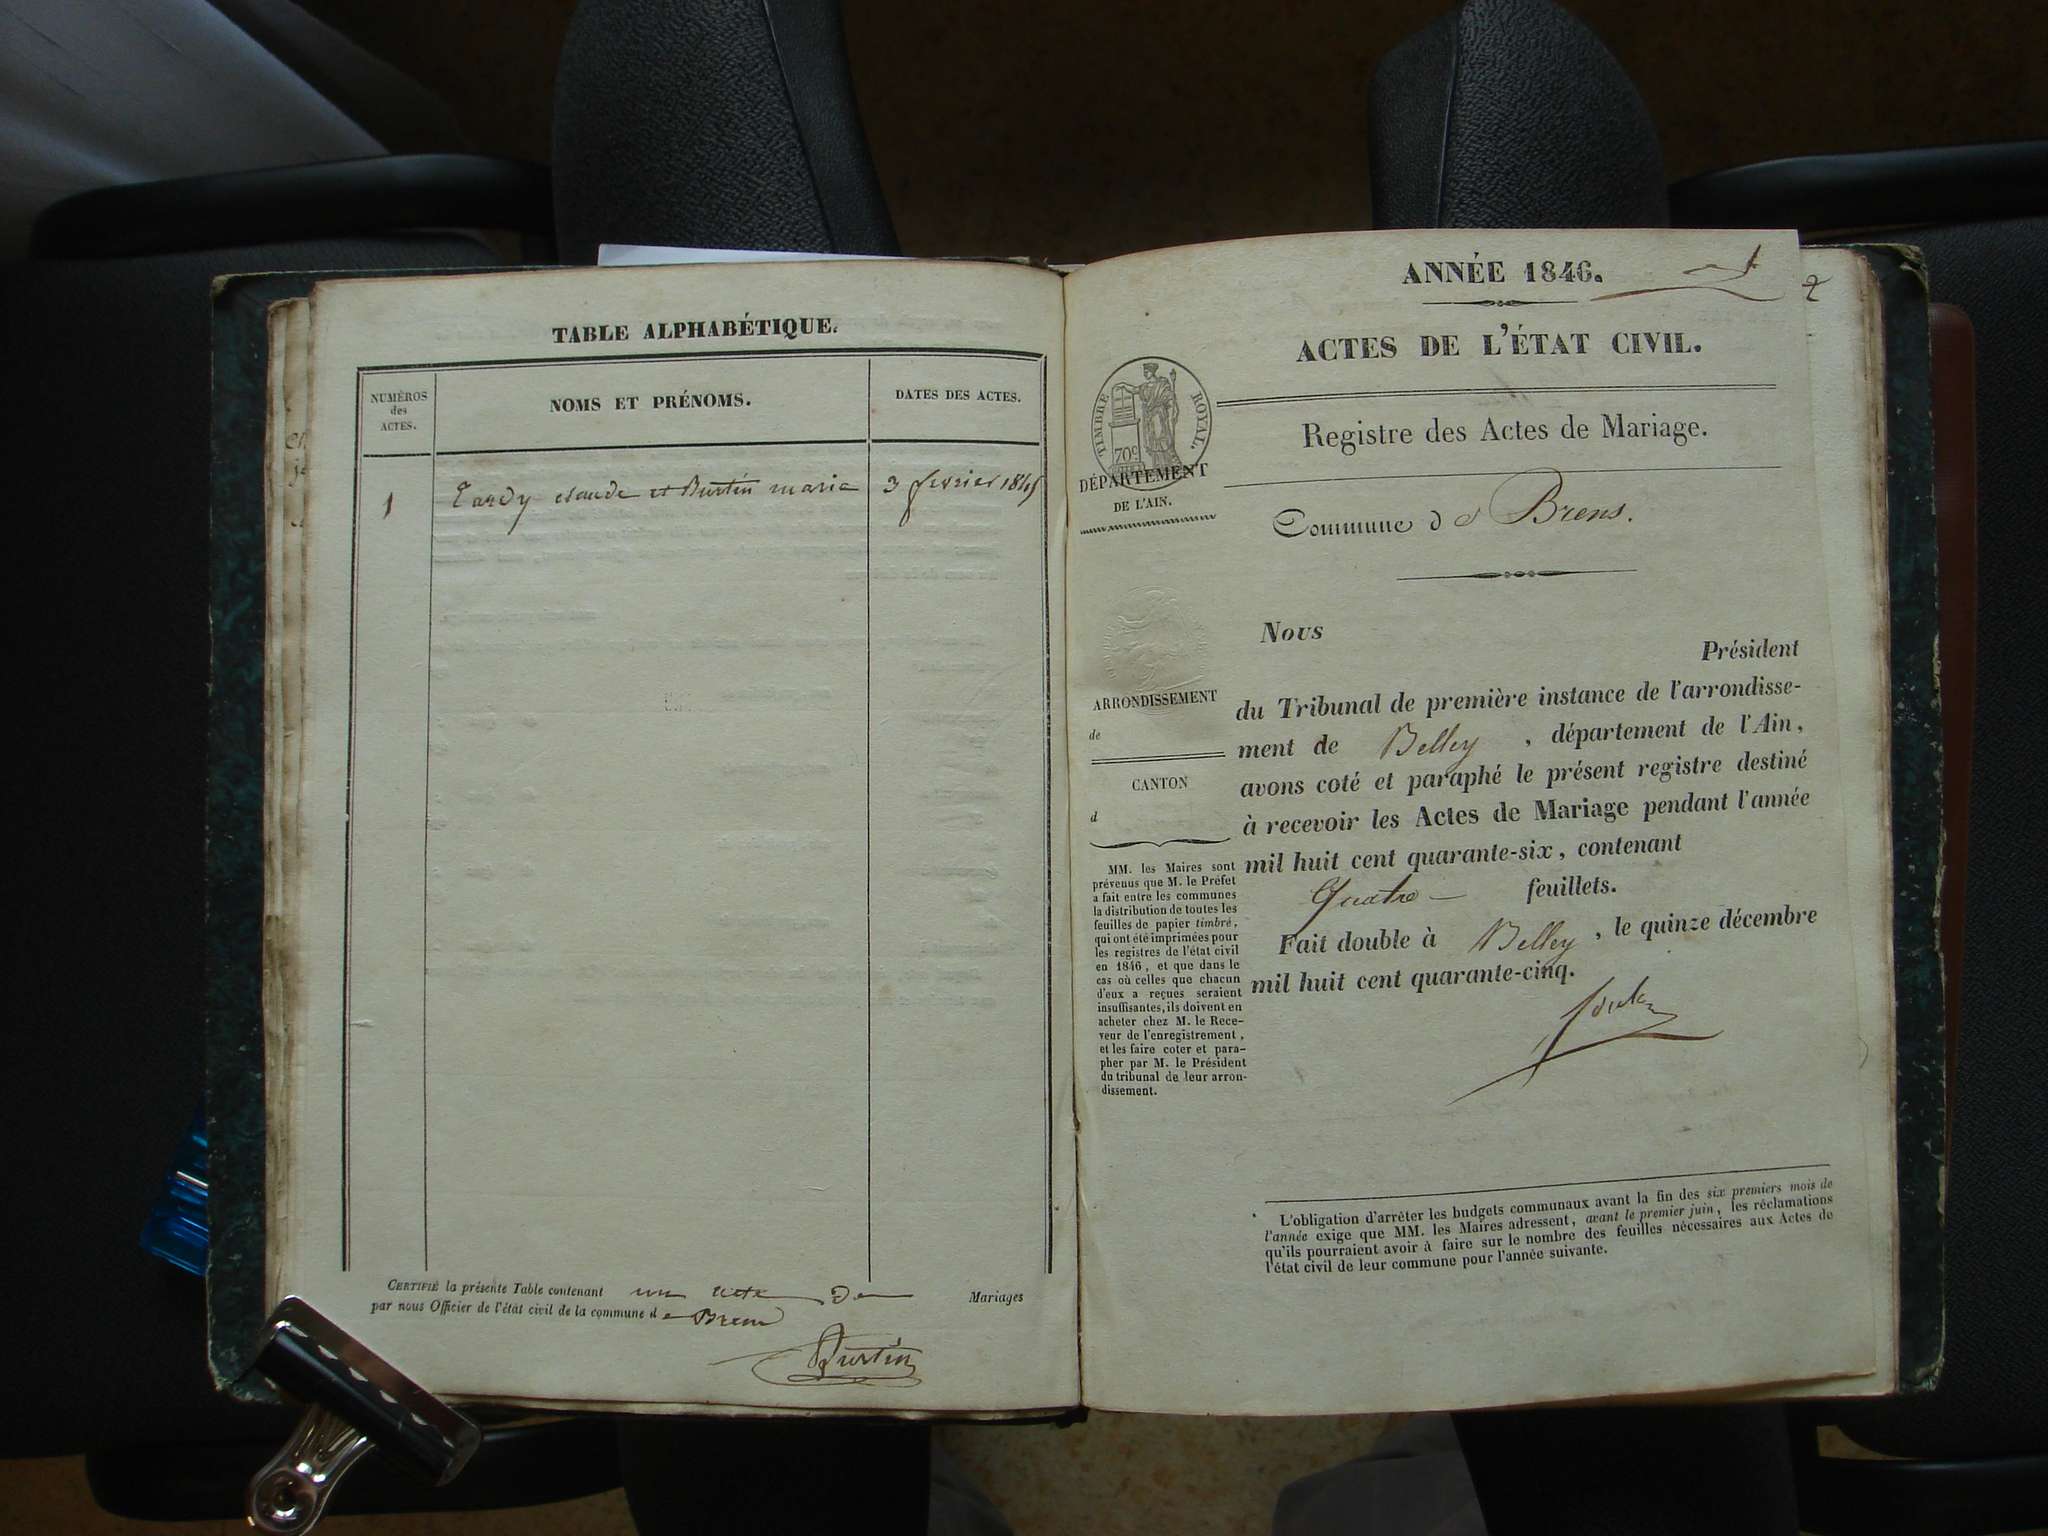 TABLE ALPHABÉTIQUE.
NUMÉROS
des
ACTES.
NOMS ET PRÉNOMS.
DATES DES ACTES.
1 Tardy claude et Burtin marie 3 fevrier 1845
CERTIFIÉ la présente Table contenant un acte De Mariages
par nous Officier de l'état civil de la commune d e Brens
Burtin
ANNÉE 1846. 1
2
ACTES DE L'ÉTAT CIVIL.
TIMBRE ROYAL.
70c
Registre des Actes de Mariage.
DÉPARTEMENT
DE L'AIN.
Commune d e Brens.
ARRONDISSEMENT
de
CANTON
d
MM. les Maires sont
prévenus que M. le Préfet
a fait entre les communes
la distribution de toutes les
feuilles de papier timbré,
qui ont été imprimées pour
les registres de l'état civil
en 1846, et que dans le
cas où celles que chacun
d'eux a reçues seraient
insuffisantes, ils doivent en
acheter chez M. le Rece-
veur de l'enregistrement,
et les faire coter et para-
pher par M. le Président
du tribunal de leur arron-
dissement.
Nous
Président
du Tribunal de première instance de l'arrondisse-
ment de Belley, département de l'Ain,
avons coté et paraphé le présent registre destiné
à recevoir les Actes de Mariage pendant l'année
mil huit cent quarante-six, contenant
Quatre — feuillets.
Fait double à Belley, le quinze décembre
mil huit cent quarante-cinq.
L'obligation d'arrêter les budgets communaux avant la fin des six premiers mois de
l'année exige que MM. les Maires adressent, avant le premier juin, les réclamations
qu'ils pourraient avoir à faire sur le nombre des feuilles nécessaires aux Actes de
l'état civil de leur commune pour l'année suivante.